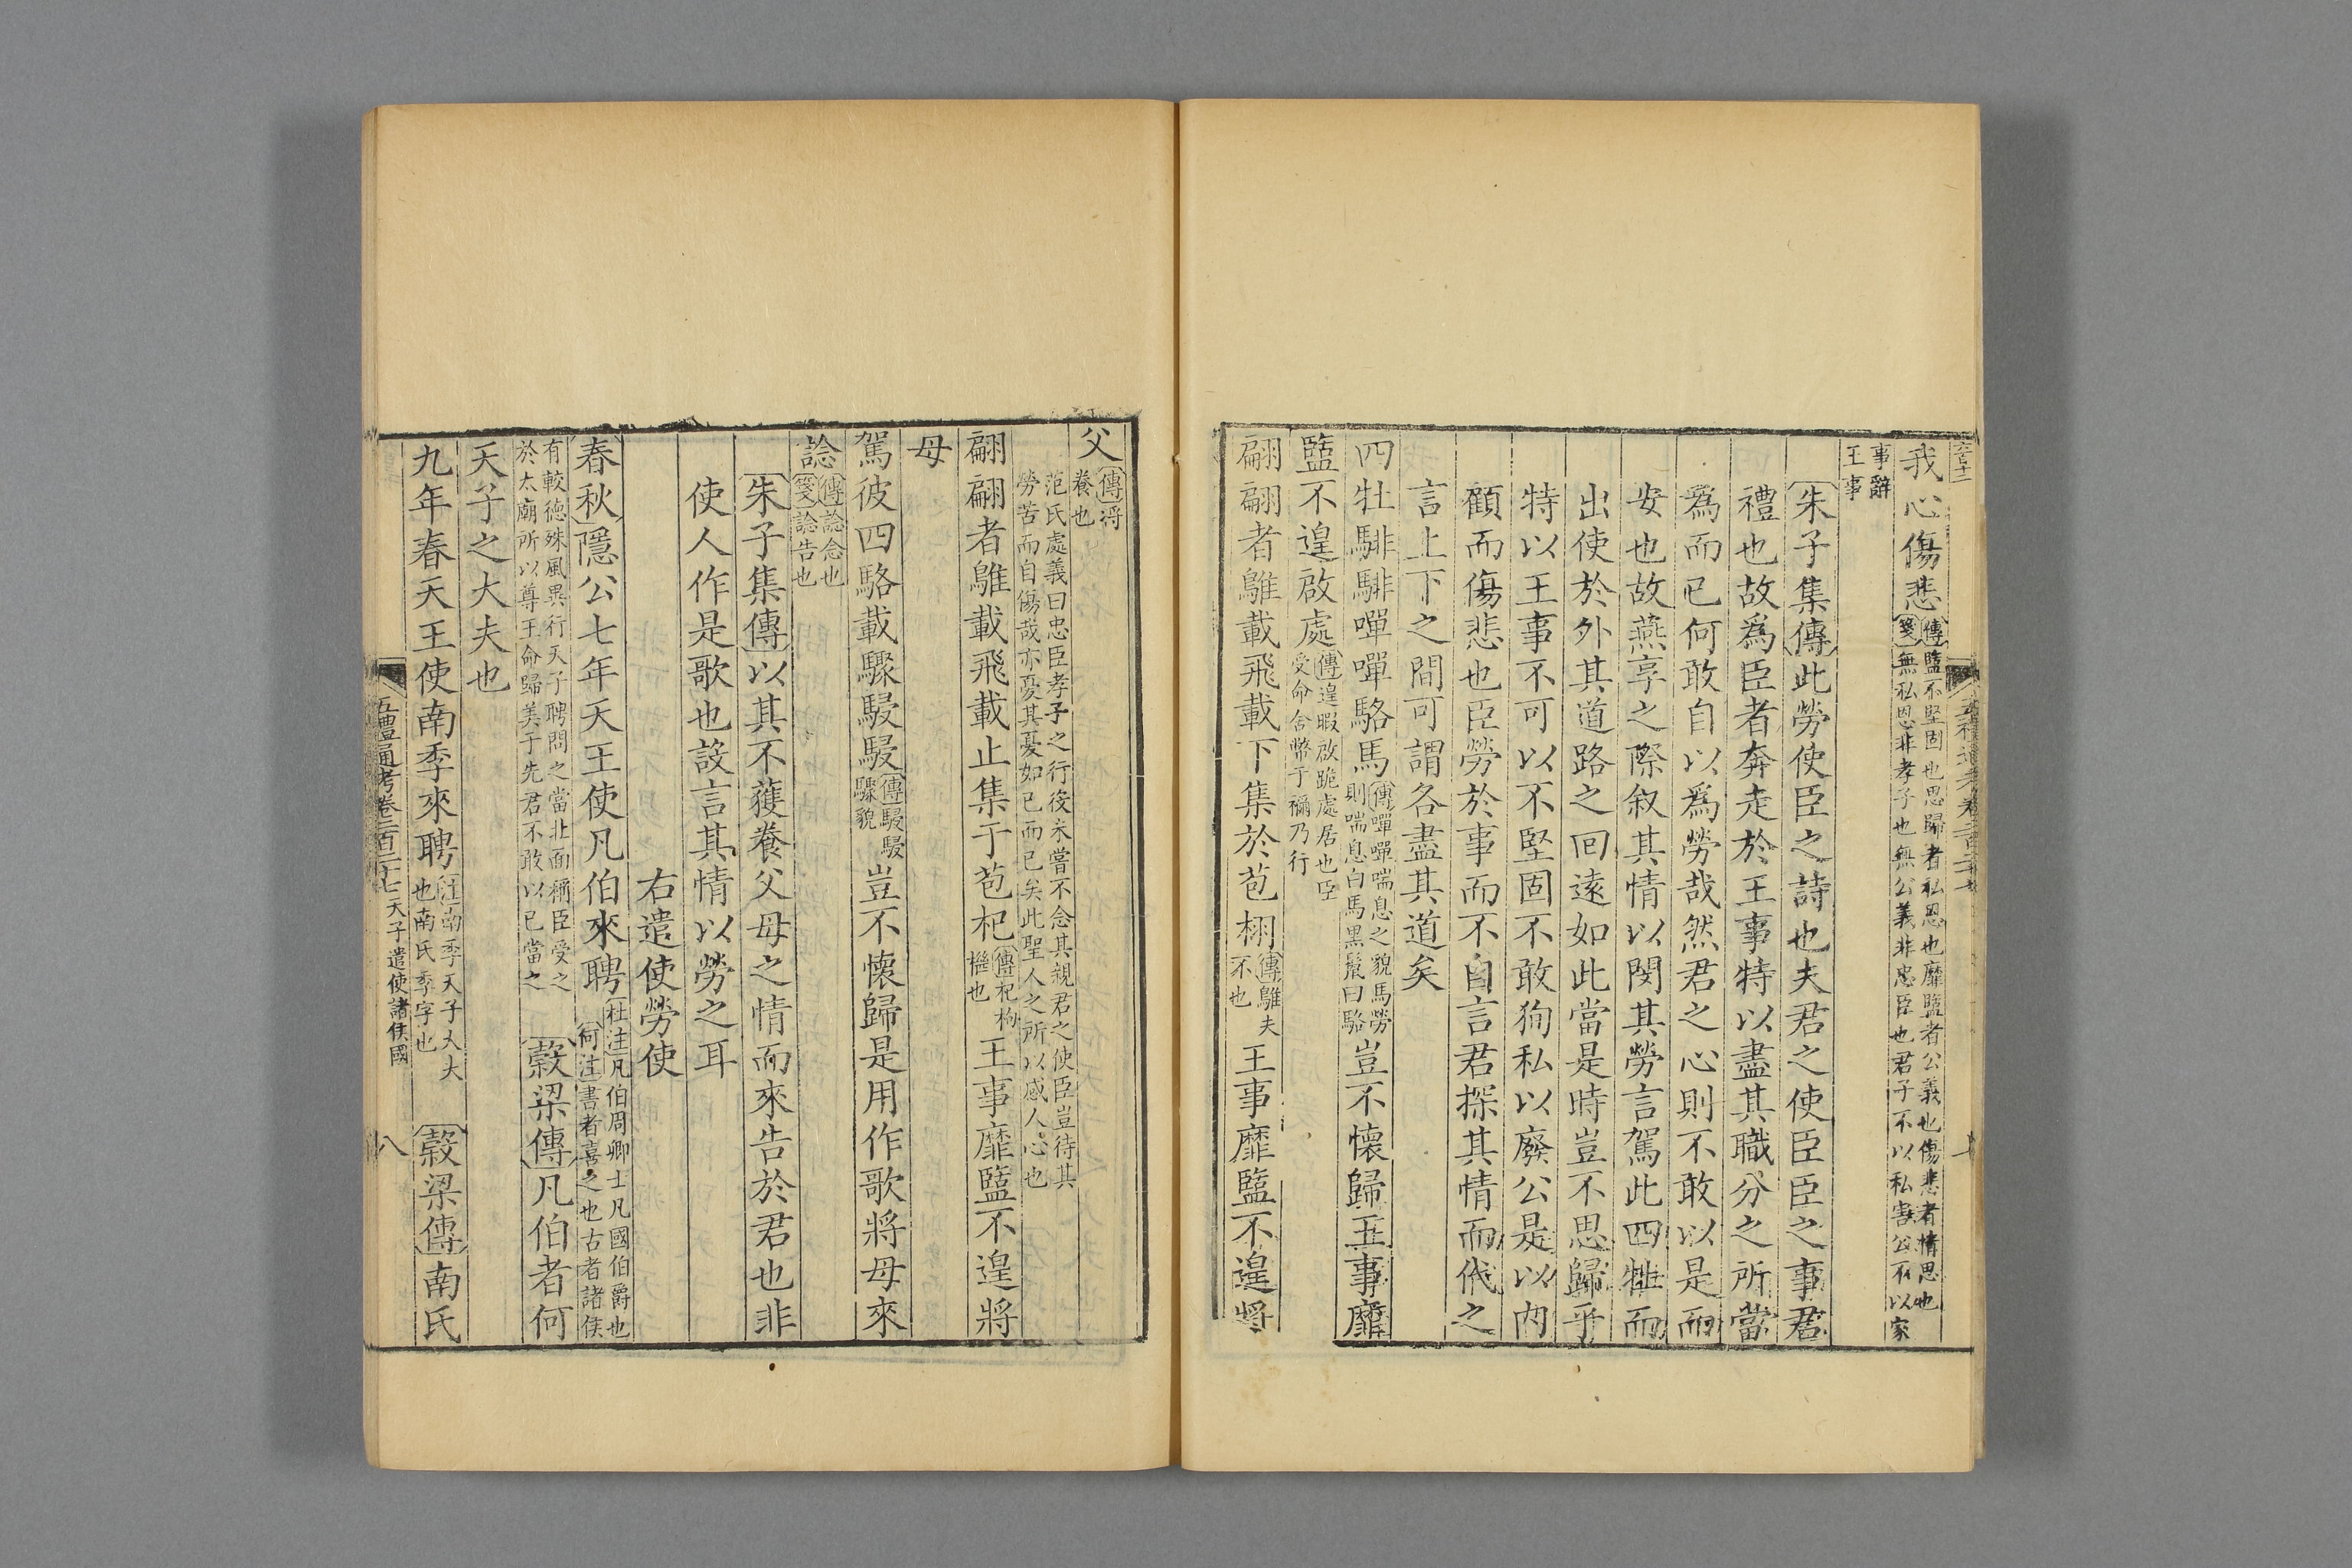 我心傷悲傳盬不堅固也思歸者私恩也靡盬者公義也傷悲者情思也箋無私恩非孝子也無公義非忠臣也君子不以私害公不以家
事辭王事
朱子集傳此勞使臣之詩也夫君之使臣臣之事君
禮也故爲臣者奔走於王事特以盡其職分之所當
爲而已何敢自以爲勞哉然君之心則不敢以是而
安也故燕享之際叙其情以閔其勞言駕此四牡而
出使於外其道路之回遠如此當是時豈不思歸乎
特以王事不可以不堅固不敢徇私以廢公是以內
顧而傷悲也臣勞於事而不自言君探其情而代之
言上下之間可謂各盡其道矣
四牡騑騑嘽嘽駱馬傳嘽嘽喘息之貌馬勞則喘息白馬黑鬣曰駱豈不懷歸王事靡
盬不遑啟處傳遑暇啟跪處居也臣受命舍幣于禰乃行
翩翩者鵻載飛載下集於苞栩傳鵻夫不也王事靡盬不遑將
父傳將養也
范氏處義曰忠臣孝子之行役未嘗不念其親君之使臣豈待其勞苦而自傷哉亦憂其憂如已而已矣此聖人之所以感人心也
翩翩者鵻載飛載止集于苞杞傳杞枸檵也王事靡盬不遑將
母
駕彼四駱載驟駸駸傳駸駸驟貌豈不懷歸是用作歌將母來
諗傳諗念也箋諗告也
朱子集傳以其不獲養父母之情而來告於君也非
使人作是歌也設言其情以勞之耳
右遣使勞使
春秋隱公七年天王使凡伯來聘杜注凡伯周卿士凡國伯爵也何注書者喜之也古者諸侯
有較德殊風異行天子聘問之當北面稱臣受之於太廟所以尊王命歸美于先君不敢以已當之穀梁傳凡伯者何
天子之大夫也
九年春天王使南季來聘注南季天子大夫也南氏季字也穀梁傳南氏
五禮通考卷二百二十七 天子遣使諸侯國 八